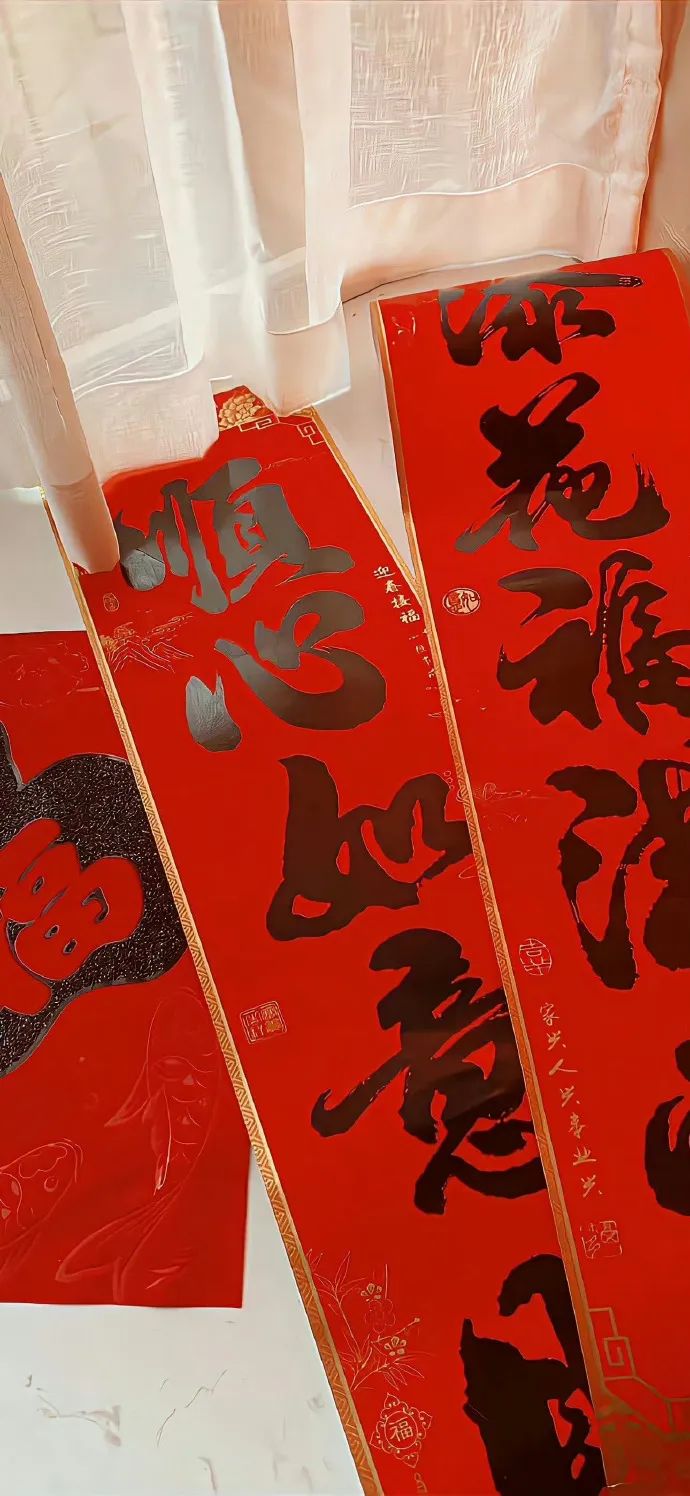 添花福满
家兴人兴事业兴
順心如意
迎春接福
福
福